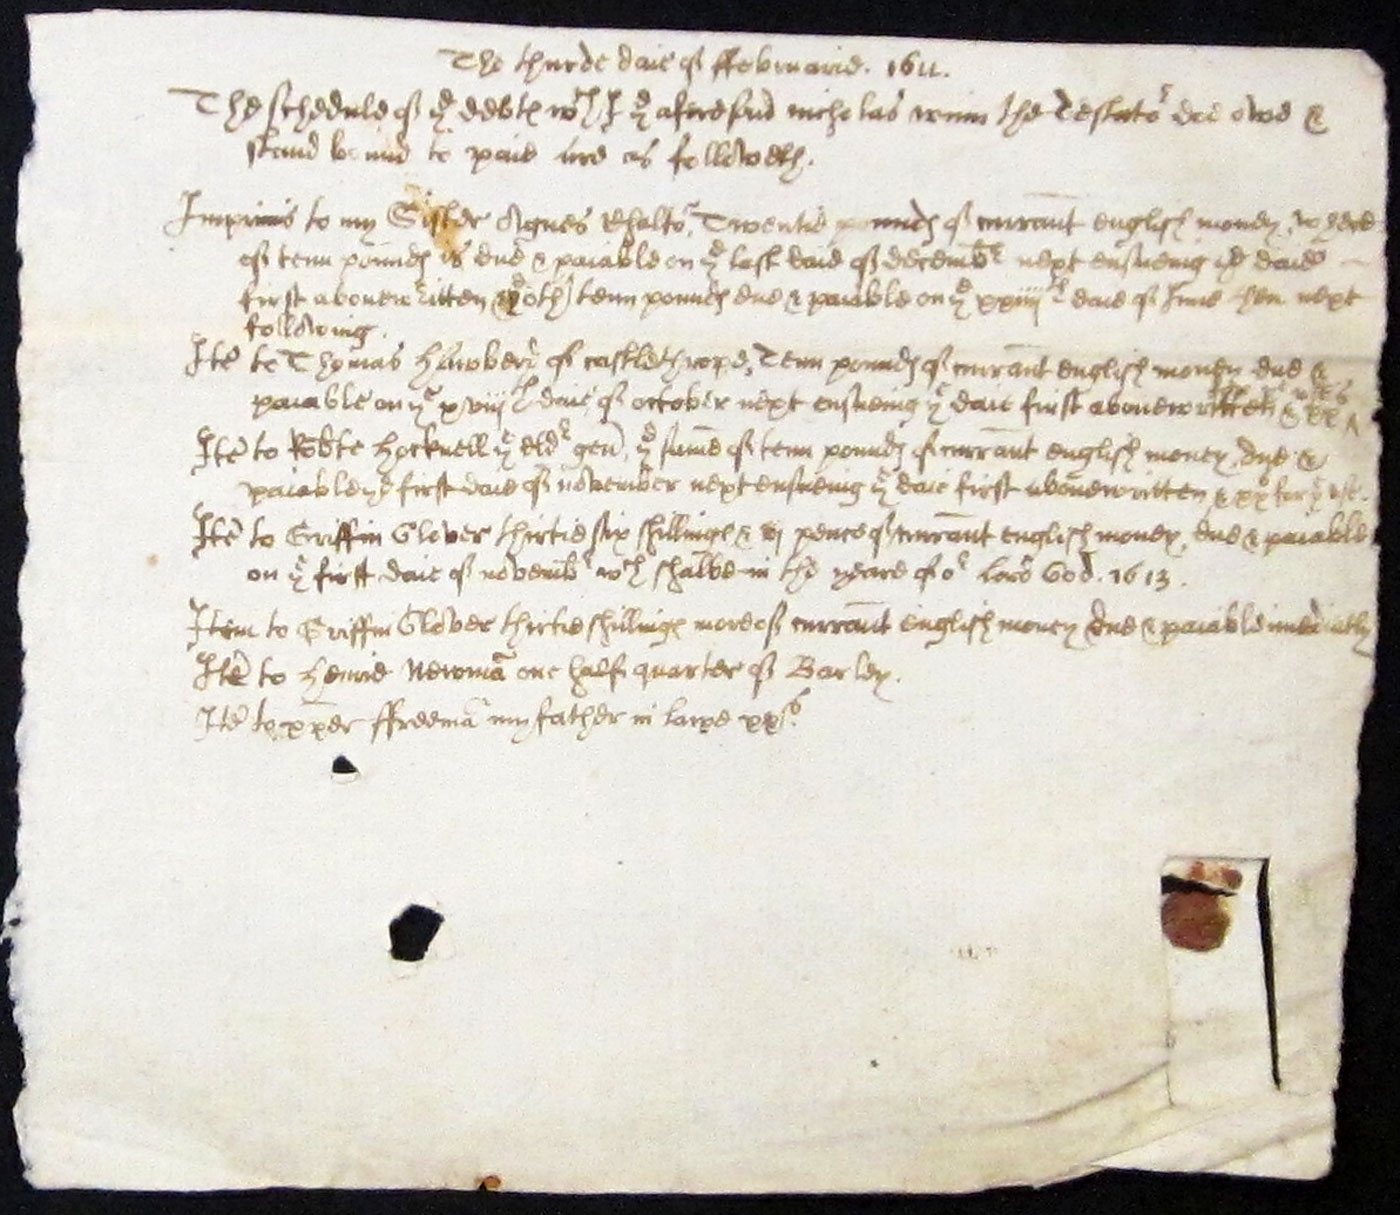 The thirde daie of ffebruarie. 1611.
The schedule of ye debts wch I ye aforesaid nicholas the Testator doe owe &
stand bound to paie are as followeth.
Imprimis to my Sister Agnes Twentie pounds of currant english money, whereof
of tenn pounds is due & paiable on ye last daie of decembr next ensueing ye daie
first abovewritten ye othr tenn pounds due & paiable on ye xxiiijth daie of June then next
following.
Itē to Thomas of castlethrope, Tenn pounds of currant english money due &
paiable on ye xviijth daie of october next ensueing ye daie first abovewritten &
Itē to Robte Hocknell ye eldr gen, ye sume of tenn pounds of currant english money, due &
paiable ye first daie of november next ensueing ye daie first abovewritten & xxs for ye use.
Itē to Griffin Glover thirtie six shillings & vj pence of currant english money, due & paiable
on ye first daie of novembr wch shalbe in the yeare of or Lord God. 1613.
Item to Griffin Glover thirtie shillings more of currant english money due & paiable imediatly
Itē to Henrie Newmā one half quarter of Barley.
Itē to xxper ffreemā my father in lawe xxs.